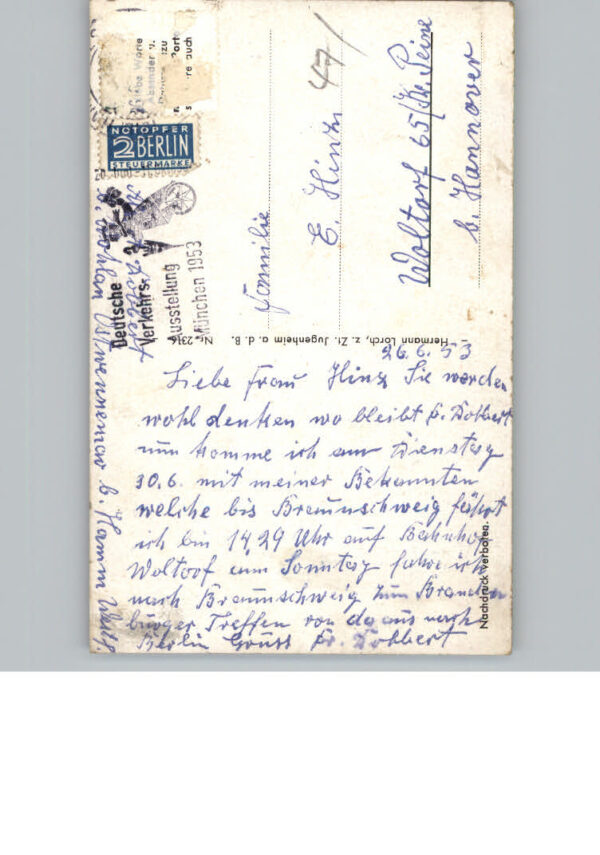 26.6.53
Liebe Frau Hinz Sie werden
wohl denken wo bleibt Fr. Dobbert
nun komme ich am Dienstag
30.6. mit meiner Bekannten
welche bis Braunschweig fährt
ich bin 14,29 Uhr auf Bahnhof
Woltorf am Sonntag fahre ich
nach Braunschweig zum Branden
burger Treffen von da aus nach
Berlin Gruss Fr. Dobbert
Familie
E. Hinz
Woltorf 65/Kr. Peine
b. Hannover
47/
NOTOPFER
2 BERLIN
STEUERMARKE
Deutsche
Verkehrs-
Ausstellung
München 1953
Dobbert
b. Hamm Westf.
Absender u.
auch
Nr. 2316
Hermann Lorch, z. Zt. Jugenheim a. d. B.
Nachdruck verboten.